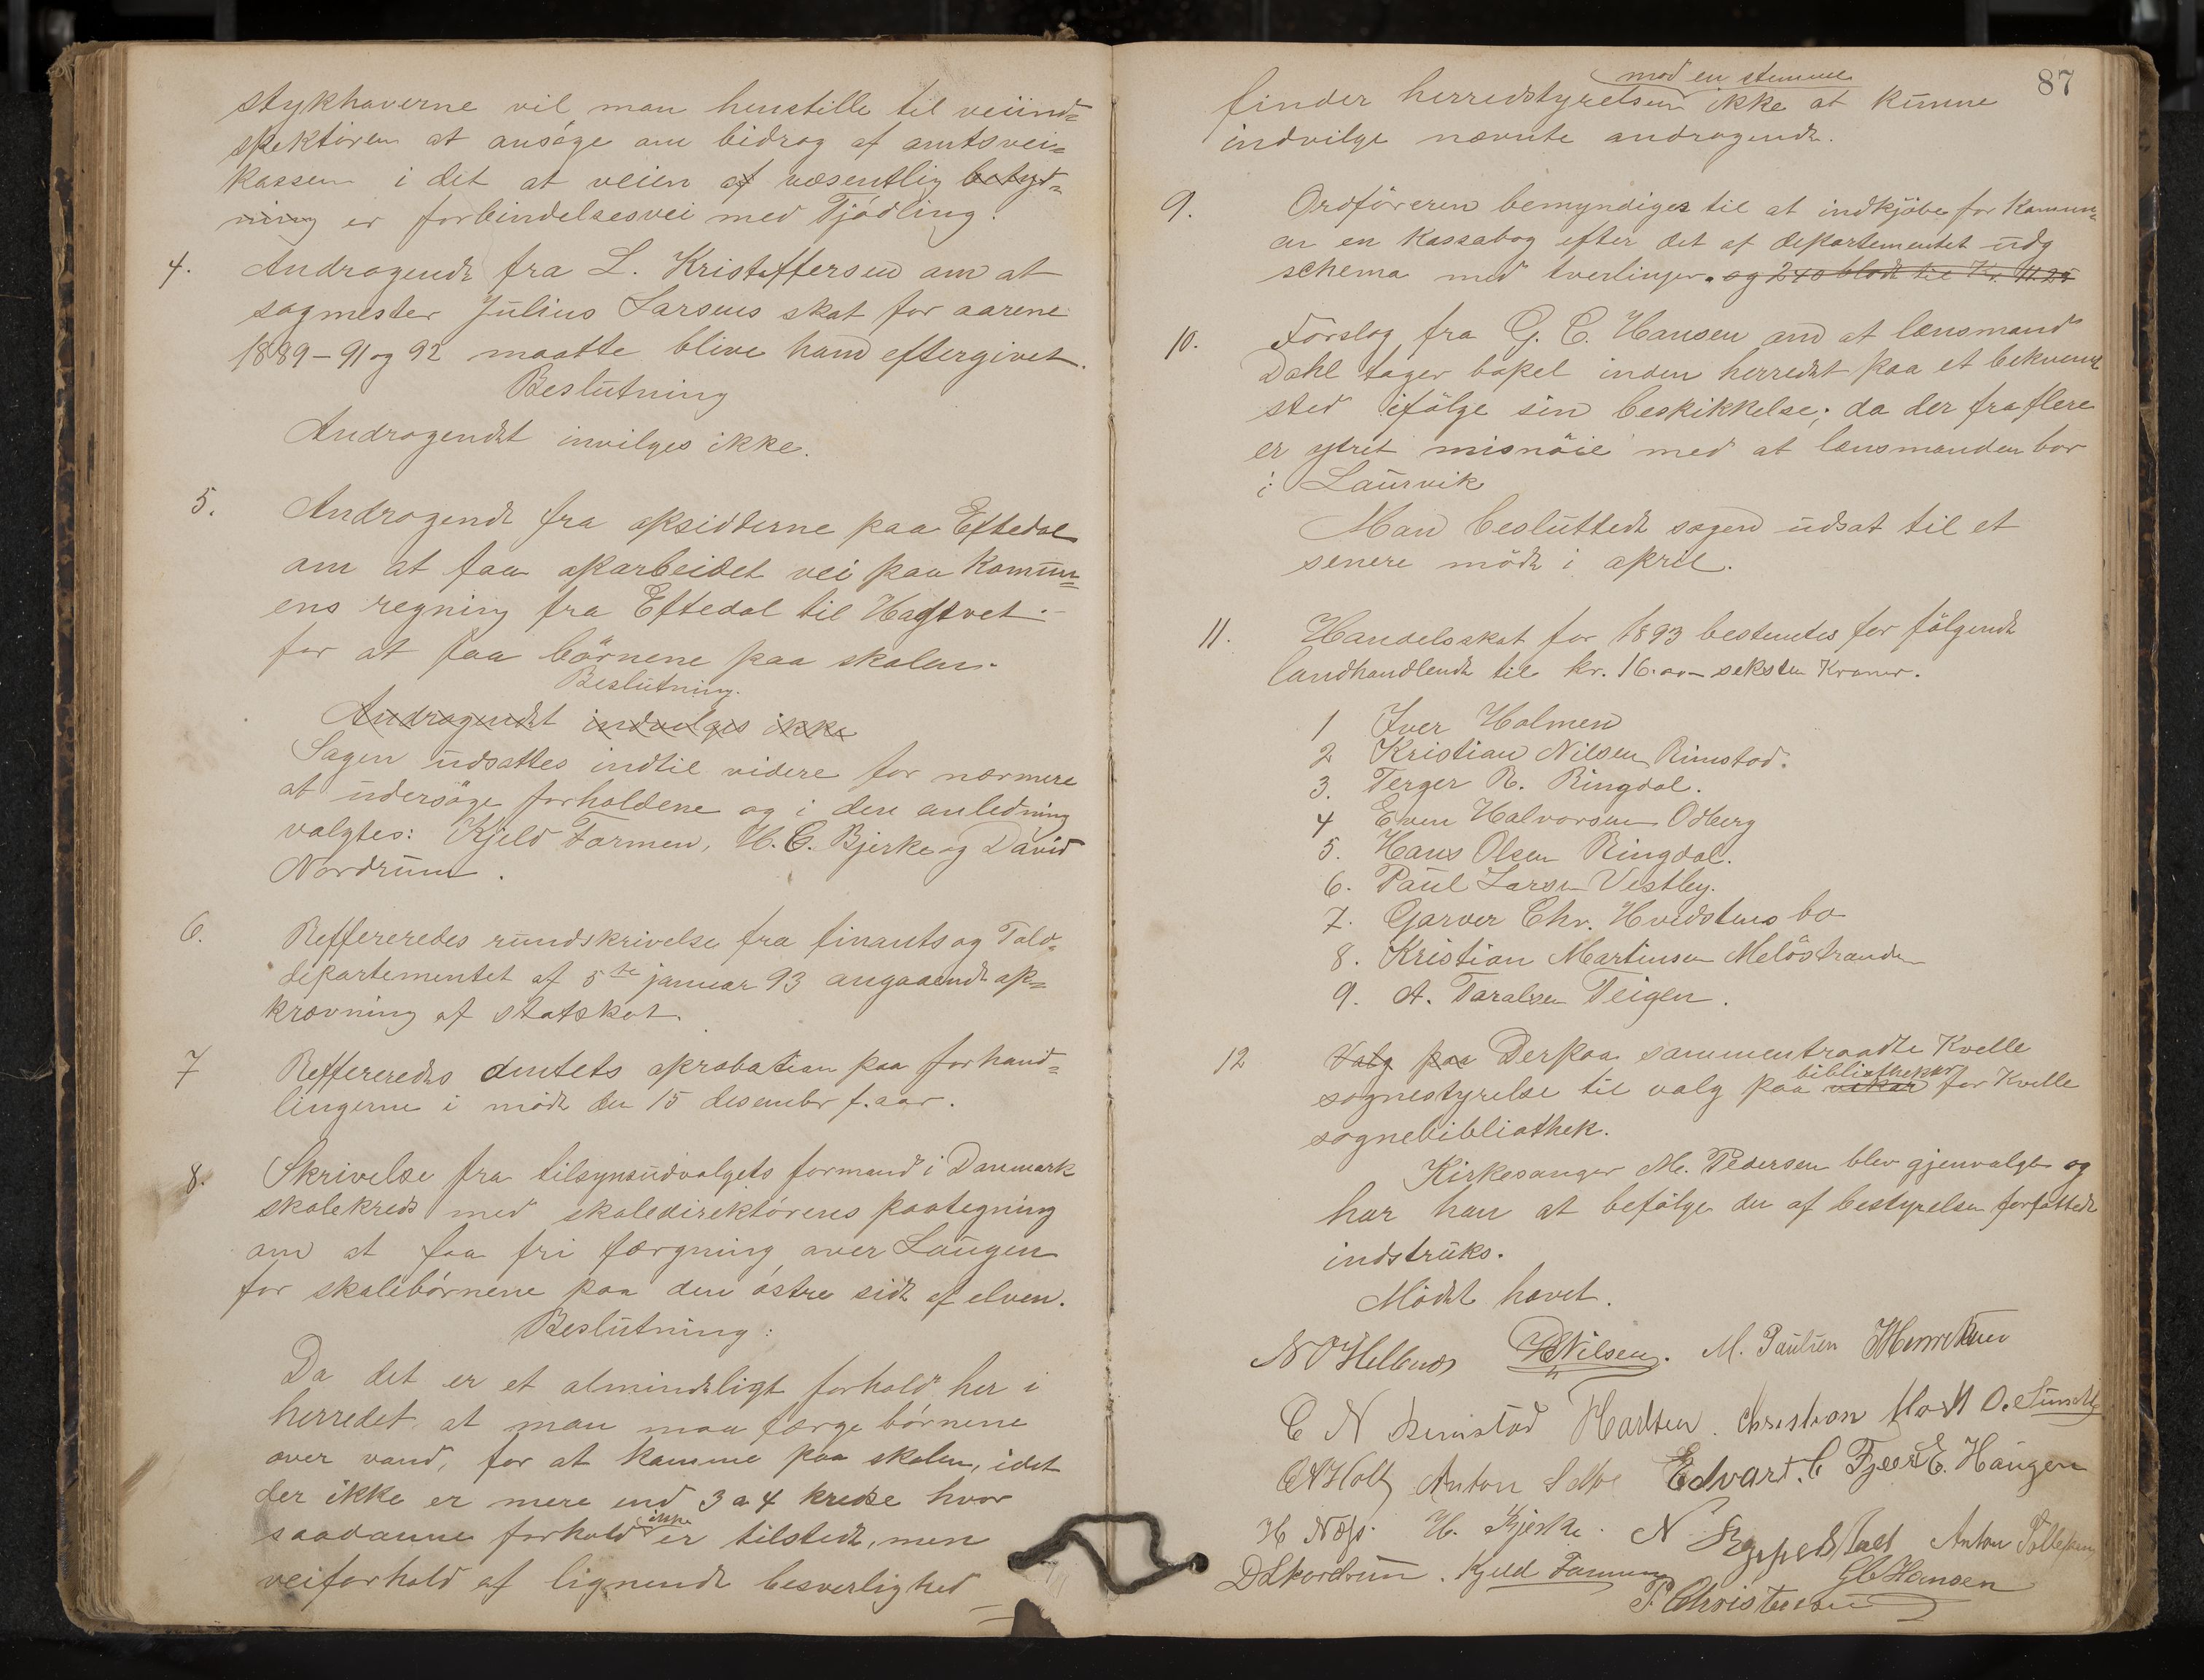 stykhaverne vil man henstille til veiind=
spektøren at ansøge om bidrag af amtsvei=
kassen i det at veien af væsentlig betyd=
ning er forbindelsesvei med Tjødling.
4. Andragende fra L. Kristoffersen om at
sagmester Julius Larsens skat for aarene
1889-91 og 92 maatte blive ham eftergivet.
Beslutning
Andragendet invilges ikke.
5. Andragende fra opsidderne paa Eftedal
om at faa oparbeidet vei paa Komun=
ens regning fra Eftedal til Hagtvet
for at faa børnene paa skolen.
Beslutning.
Andragendet indvilges ikke
Sagen udsattes indtil videre for nærmere
at undersøge forholdene og i den anledning
valgtes: Kjeld Farmen, H. C. Bjerke og David
Nordrum.
6. Reffereredes rundskrivelse fra finants og Told=
departementet af 5te januar 93 angaaende op=
krævning af statskat.
7 Reffereredes amtets aprobation paa forhand=
lingerne i møde den 15 desember f. aar.
8. Skrivelse fra tilsynsudvalgets formand i Danmark
skolekreds med skoledirektørens paategning
om at faa fri færgning over Laugen
for skolebørnene paa den østre side af elven.
Beslutning:
Da det er et almindeligt forhold her i
herredet at man maa færge børnene
over vand, for at komme paa skolen, idet
der ikke er mere end 3 a 4 kredse hvor
saadanne forhold ikke er tilstede, men
veiforhold af lignende besverlighed
87
finder herredstyrelsen mod en stemme ikke at kunne
indvilge nævnte andragende.
9. Ordføreren bemyndiges til at indkjøbe for Komun=
en en Kassabog efter det af departementet udg
schema med tverlinjer. og 240 blade til Kr. 11.25
10. Forslag fra G. C. Hansen om at lensmand
Dahl tager bopel inden herredet paa et bekvemt
sted ifølge sin beskikkelse; da der fra flere
er ytret misnøie med at lensmanden bor
i Laurvik
Man besluttede sagen udsat til et
senere møde i april.
11. Handelsskat for 1893 bestemtes for følgende
landhandlende til kr. 16.00 seksten Kroner.
1 Iver Holmen
2 Kristian Nilsen Rimstad.
3. Terger R. Ringdal.
4 Even Halvorsen Odberg
5. Hans Olsen Ringdal.
6. Paul Larsen Vestby.
7. Garver Chr. Hvidstens bo
8. Kristian Martinsen Meløstranden
9. A. Taralsen Teigen.
12 Valg paa Derpaa sammentraadte Kvelle
sognestyrelse til valg paa vikar bibliothekar for Kvelle
sognebibliothek.
Kirkesanger M. Pedersen blev gjenvalgt og
har han at befølge den af bestyrelsen forfattede
indstruks.
Mødet hævet.
N O Hellenes Nilsen. M. Paulsen
C N Rimstad Karlsen. Christian Holt O. Sundby
O A Holt Anton Edvart. C Fjære E. Haugen
H Næss. H. Bjerke. N Anton Tollefsen
D L Nordrum. Kjeld Farmen G C Hansen
P. Christensen